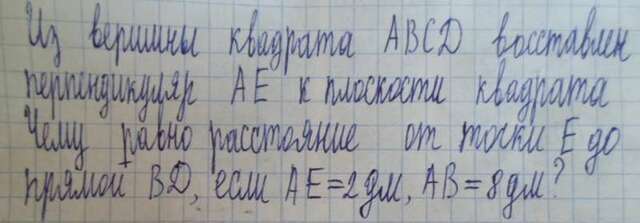 Из вершины квадрата ABCD восставлен
перпендикуляр AE к плоскости квадрата
Чему равно расстояние от точки E до
прямой BD, если AE=2дм, AB=8дм?